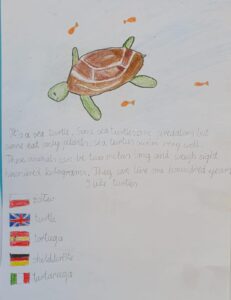 It's a sea turtle. Some sea turtles are predators but
some eat only plants. Sea turtles swim very well.
These animals can be two meters long and weigh eight
hundred kilograms. They can live one hundred years.
I like turtles
żółw
turtle
tortuga
Schildkröte
tartaruga